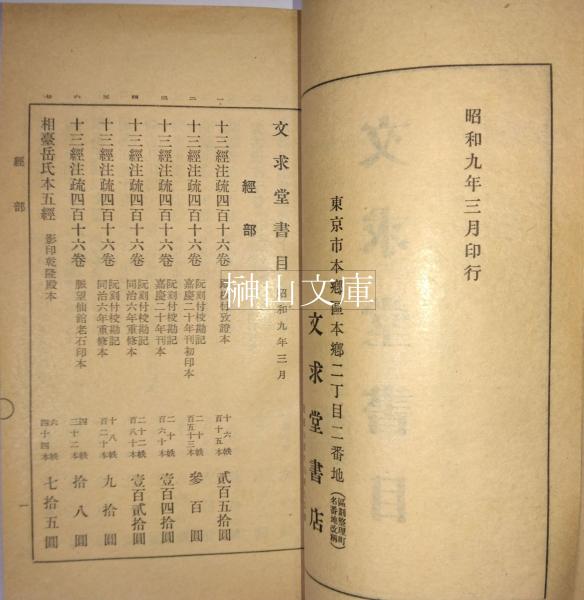 昭和九年三月印行
東京市本鄉區本鄉二丁目二番地(區劃整理町名番地改稱)
文求堂書店
文求堂書目 昭和九年三月
經部
十三經注疏四百十六卷 殿板附攷證本 十六帙 百十五本 貳百五拾圓
十三經注疏四百十六卷 阮刻付校勘記 嘉慶二十年刊初印本 二十帙 百五十三本 參百圓
十三經注疏四百十六卷 阮刻付校勘記 嘉慶二十年刊本 二十帙 百六十本 壹百四拾圓
十三經注疏四百十六卷 阮刻付校勘記 同治六年重修本 二十帙 百八十二本 壹百貳拾圓
十三經注疏四百十六卷 阮刻付校勘記 同治六年重修本 十八帙 百二十本 九拾圓
十三經注疏四百十六卷 脈望仙館老石印本 四帙 三十二本 拾八圓
相臺岳氏本五經 影印乾隆殿本 六帙 四十四本 七拾五圓
經部
一
榊山文庫